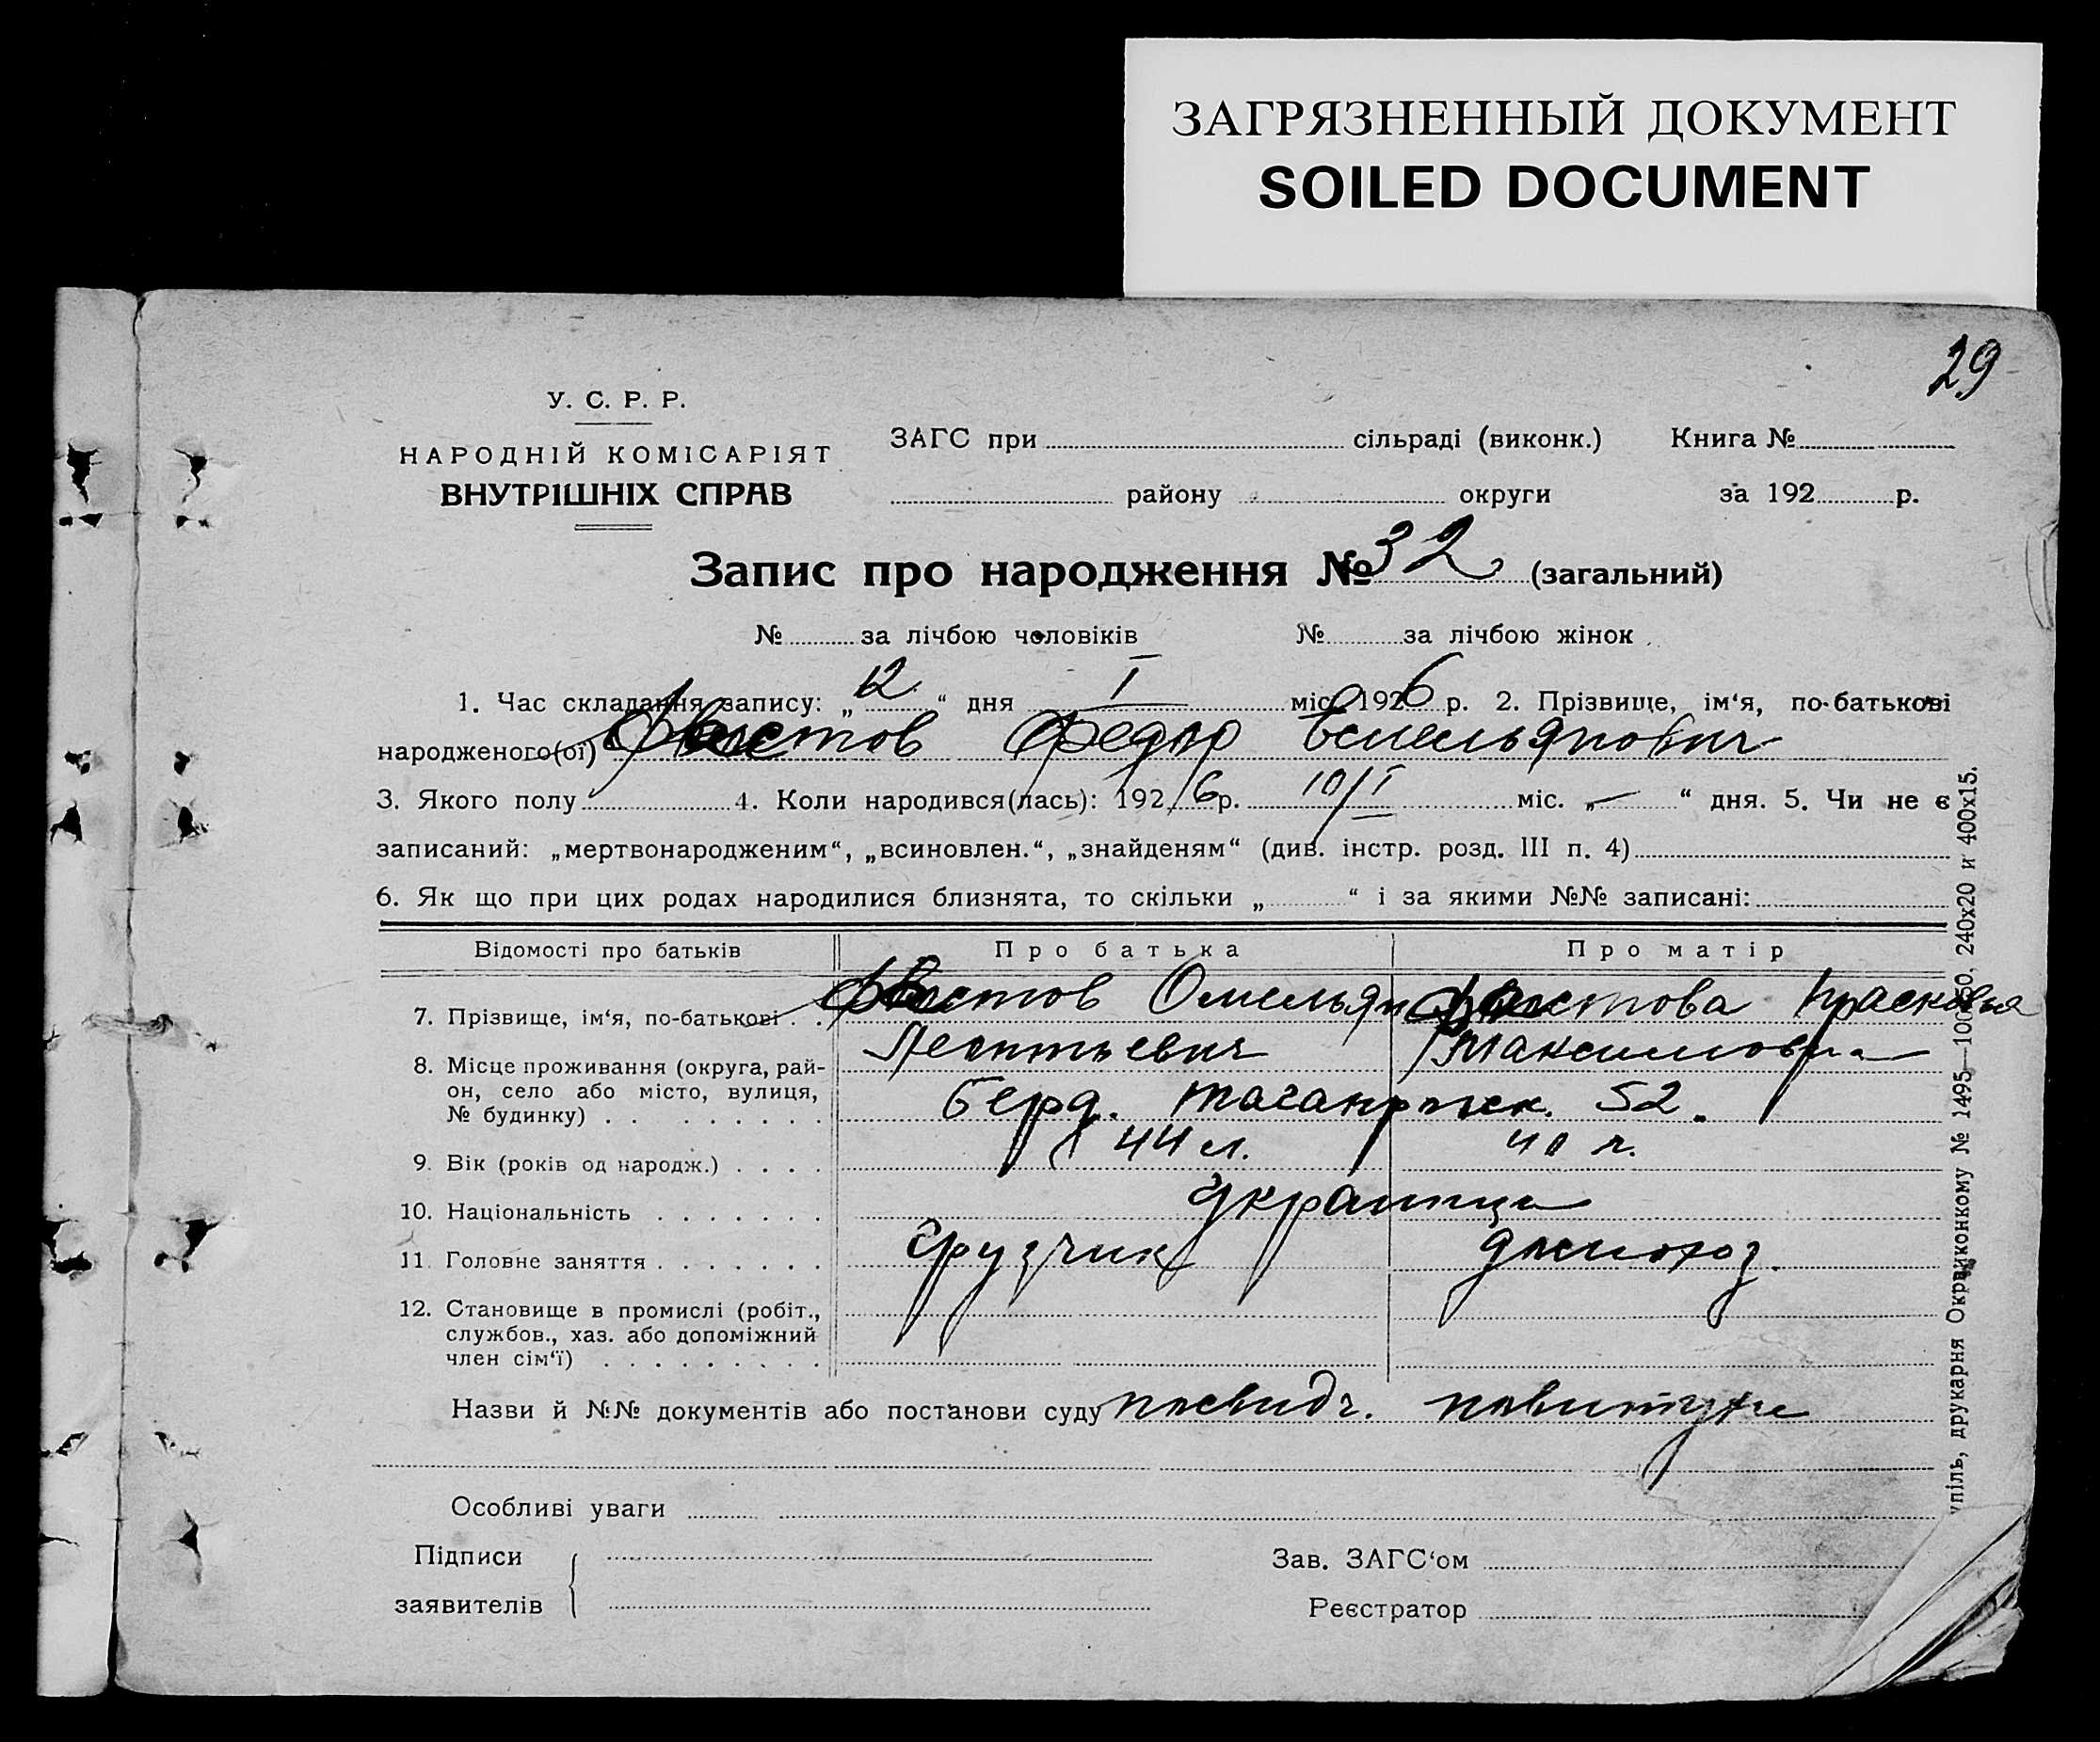 ЗАГРЯЗНЕННЫЙ ДОКУМЕНТ
SOILED DOCUMENT
29
У. С. Р. Р.
НАРОДНІЙ КОМІСАРІЯТ
ВНУТРІШНІХ СПРАВ
ЗАГС при сільраді (виконк.) Книга №
району округи за 192 р.
Запис про народження № 32 (загальний)
№ за лічбою чоловіків № за лічбою жінок
1. Час складання запису: „12“ дня I міс. 1926 р. 2. Прізвище, ім‘я, по-батькові
народженого(ої) Федор Емельянович
3. Якого полу 4. Коли народився(лась): 1926 р. 10/I міс. „—“ дня. 5. Чи не є
записаний: „мертвонародженим“, „всиновлен.“, „знайденям“ (див. інстр. розд. III п. 4)
6. Як що при цих родах народилися близнята, то скільки „ “ і за якими №№ записані:
Відомості про батьків Про батька Про матір
7. Прізвище, ім‘я, по-батькові . . Омельян Прасковья
Леонтьевич Максимовна
8. Місце проживання (округа, рай-
он, село або місто, вулиця,
№ будинку) . . . . . . . . Берд. Таганрожск. 52.
9. Вік (років од народж.) . . . . 44 л. 40 л.
10. Національність . . . . . . . Украинцы
11. Головне заняття . . . . . . . Грузчик домохоз.
12. Становище в промислі (робіт.,
службов., хаз. або допоміжний
член сім‘ї) . . . . . . . . .
Назви й №№ документів або постанови суду посвидч. повитухи
Особливі уваги
Підписи
заявителів
Зав. ЗАГС‘ом
Реєстратор
упіль, друкарня Окрвиконкому № 1495—100 50. 240х20 и 400х15.